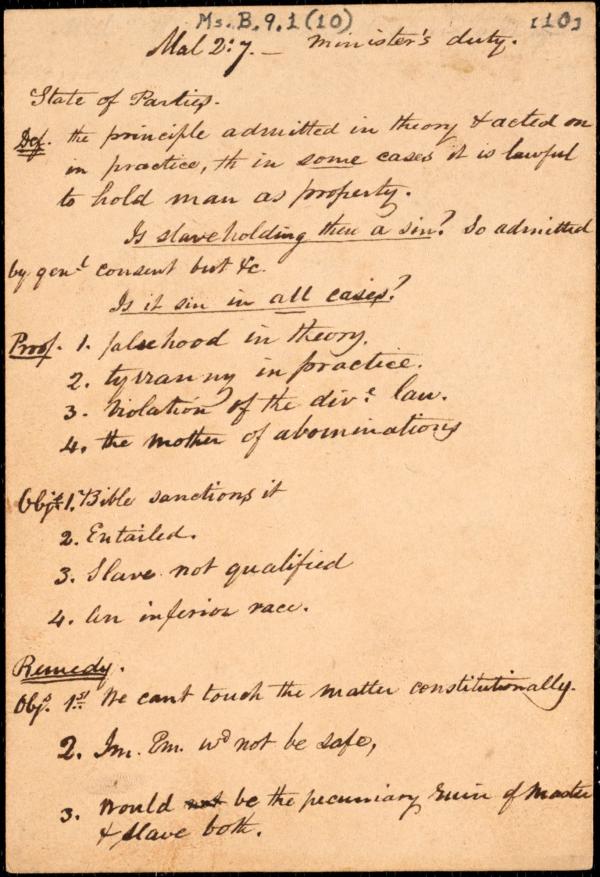 Ms. B. 9. 1 (10) [10]
Mal 2:7. — Minister's duty.
State of Parties.
Def. the principle admitted in theory & acted on
in practice, th in some cases it is lawful
to hold man as property.
Is slaveholding then a sin? So admitted
by genl consent but &c.
Is it sin in all cases?
Proof. 1. falsehood in theory.
2. tyranny in practice.
3. Violation of the dive law.
4. the mother of abominations
Objs 1. Bible sanctions it
2. Entailed.
3. Slave not qualified
4. An inferior race.
Remedy.
Objs. 1st We cant touch the matter constitutionally.
2. Im. Em. wd not be safe,
3. Would not be the pecuniary ruin of Master
& slave both.